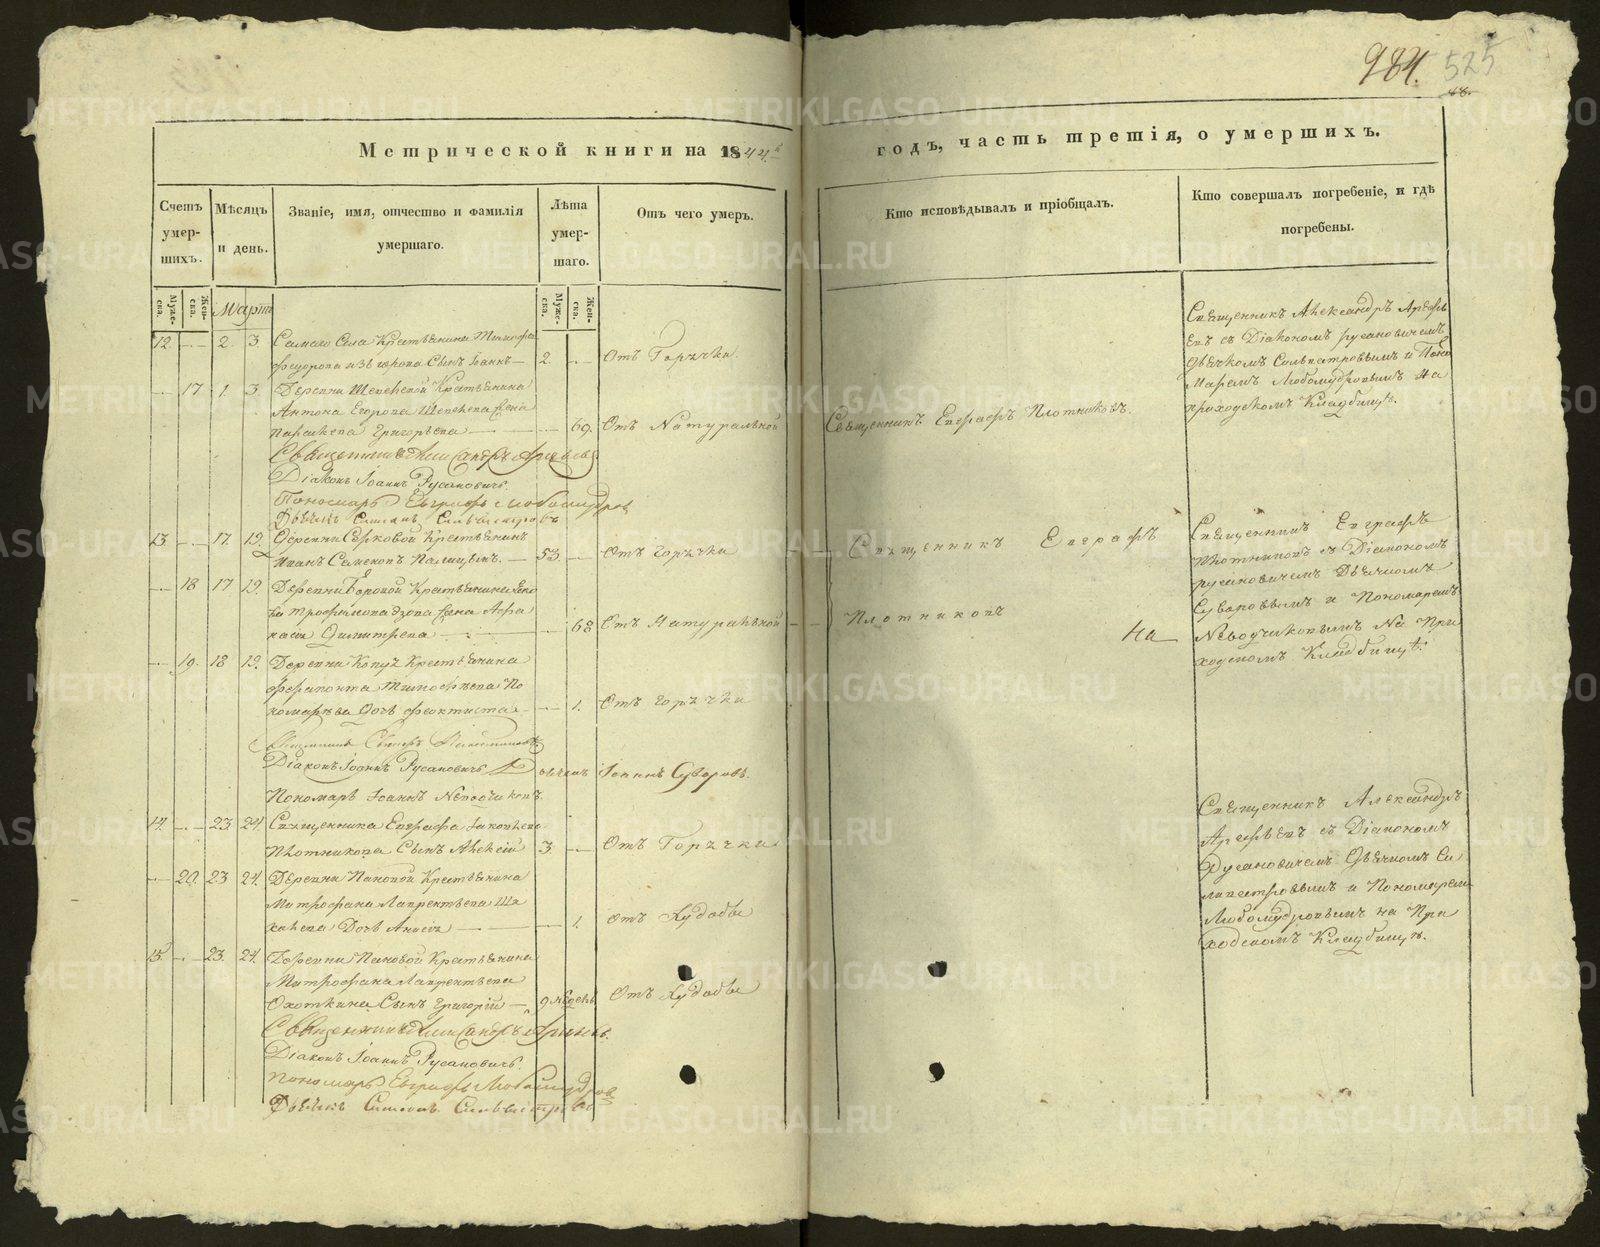 984. 525
Метрической книги на 1844й годъ, часть третія, о умершихъ.
Счетъ умер-шихъ.
Мѣсяцъ и день.
Званіе, имя, отчество и фамилія умершаго.
Лѣта умер-шаго.
Отъ чего умеръ.
Кто исповѣдывалъ и пріобщалъ.
Кто совершалъ погребеніе, и гдѣ погребены.
Муже-ска.
Жен-ска.
Муже-ска.
Жен-ска.
Мартъ
12 2 3 Самаго Села Крестьянина
Сынъ Іоаннъ 2 Отъ Горячки
17 1 3 Деревни Крестьянина
Антона Егорова Жена
Григорьева 69 Отъ Натуральной
Священникъ Евграфъ Плотниковъ.
Священникъ Александръ Арефьевъ
Діаконъ Іоаннъ Русановичъ
Пономарь Евграфъ Любомудровъ
Дьячекъ Симеонъ Сильвестровъ
Священникъ Александръ Арефь
евъ съ Діакономъ Русановичемъ
Дьячкомъ Сильвестровымъ и Поно
маремъ Любомудровымъ на
приходскомъ Кладбищѣ.
13 17 19 Деревни Крестьянинъ
Иванъ Семеновъ 53 Отъ горячки
Священникъ Евграфъ
18 17 19 Деревни Крестьянина
Жена
Димитрева 68 Отъ Натуральной
Плотниковъ
19 18 19 Деревни Копух Крестьянина
Ферапонта Тимофѣева По
номарева Дочь Феоктиста 1 Отъ горячки
Священникъ Евграфъ Плотниковъ
Діаконъ Іоаннъ Русановичъ Дьячекъ Іоаннъ Суворовъ.
Пономарь Іоаннъ Неводчиковъ
Священникъ Евграфъ
Плотниковъ съ Діакономъ
Русановичемъ Дьячкомъ
Суворовымъ и Пономаремъ
На Неводчиковымъ На При
ходскомъ Кладбищѣ.
14 23 24 Священника Евграфа Іаковлева
Плотникова Сынъ Алексій 3 Отъ Горячки
20 23 24 Деревни Пановой Крестьянина
Митрофана Лаврентьева
Дочь 1 Отъ Худобы
15 23 24 Деревни Пановой Крестьянина
Митрофана Лаврентьева
Охоткина Сынъ Григорій Отъ Худобы
Священникъ Александръ Арефьевъ.
Діаконъ Іоаннъ Русановичъ.
Пономарь Евграфъ Любомудровъ
Дьячекъ Симеонъ Сильвестровъ
Священникъ Александръ
Арефьевъ съ Діакономъ
Русановичемъ Дьячкомъ Си
львестровымъ и Пономаремъ
Любомудровымъ на При
ходскомъ Кладбищѣ.
METRIKI.GASO-URAL.RU